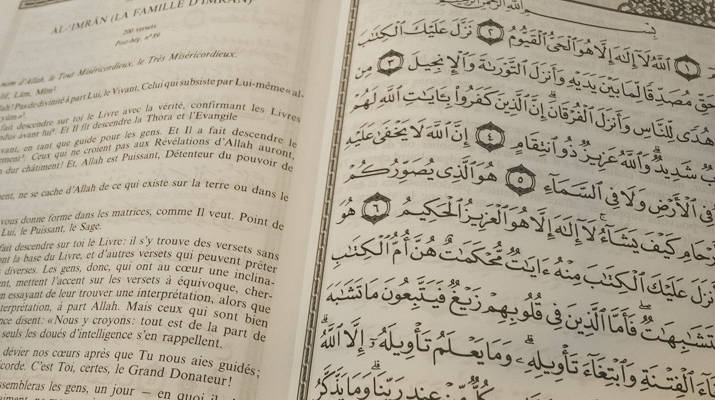 AL-'IMRÂN (LA FAMILLE D'IMRAN)
200 versets
Post-hég. n° 89
nom d'Allah, le Tout Miséricordieux, le Très Miséricordieux.
Lâm, Mîm
Pas de divinité à part Lui, le Vivant, Celui qui subsiste par Lui-même «al-
fait descendre sur toi le Livre avec la vérité, confirmant les Livres
Et Il fit descendre la Thora et l'Evangile
en tant que guide pour les gens. Et Il a fait descendre le
Ceux qui ne croient pas aux Révélations d'Allah auront,
dur châtiment! Et, Allah est Puissant, Détenteur du pouvoir de
ne se cache d'Allah de ce qui existe sur la terre ou dans le
vous donne forme dans les matrices, comme Il veut. Point de
Lui, le Puissant, le Sage.
fait descendre sur toi le Livre: il s'y trouve des versets sans
la base du Livre, et d'autres versets qui peuvent prêter
diverses. Les gens, donc, qui ont au cœur une inclina-
mettent l'accent sur les versets à équivoque, cher-
en essayant de leur trouver une interprétation, alors que
à part Allah. Mais ceux qui sont bien
disent: «Nous y croyons: tout est de la part de
seuls les doués d'intelligence s'en rappellent.
dévier nos cœurs après que Tu nous aies guidés;
C'est Toi, certes, le Grand Donateur!
les gens, un jour — en quoi il
بِسْمِ ٱللَّهِ ٱلرَّحْمَٰنِ ٱلرَّحِيمِ
١ ٱللَّهُ لَآ إِلَٰهَ إِلَّا هُوَ ٱلْحَىُّ ٱلْقَيُّومُ ٢ نَزَّلَ عَلَيْكَ ٱلْكِتَٰبَ
مُصَدِّقًا لِّمَا بَيْنَ يَدَيْهِ وَأَنزَلَ ٱلتَّوْرَىٰةَ وَٱلْإِنجِيلَ ٣ مِن
هُدًى لِّلنَّاسِ وَأَنزَلَ ٱلْفُرْقَانَ إِنَّ ٱلَّذِينَ كَفَرُوا۟ بِـَٔايَٰتِ ٱللَّهِ لَهُمْ
شَدِيدٌ وَٱللَّهُ عَزِيزٌ ذُو ٱنتِقَامٍ ٤ إِنَّ ٱللَّهَ لَا يَخْفَىٰ عَلَيْهِ
فِى ٱلْأَرْضِ وَلَا فِى ٱلسَّمَآءِ ٥ هُوَ ٱلَّذِى يُصَوِّرُكُمْ
كَيْفَ يَشَآءُ لَآ إِلَٰهَ إِلَّا هُوَ ٱلْعَزِيزُ ٱلْحَكِيمُ ٦ هُوَ
أَنزَلَ عَلَيْكَ ٱلْكِتَٰبَ مِنْهُ ءَايَٰتٌ مُّحْكَمَٰتٌ هُنَّ أُمُّ ٱلْكِتَٰبِ
فَأَمَّا ٱلَّذِينَ فِى قُلُوبِهِمْ زَيْغٌ فَيَتَّبِعُونَ مَا تَشَٰبَهَ
ٱلْفِتْنَةِ وَٱبْتِغَآءَ تَأْوِيلِهِۦ وَمَا يَعْلَمُ تَأْوِيلَهُۥٓ إِلَّا ٱللَّهُ
كُلٌّ مِّنْ عِندِ رَبِّنَا وَمَا يَذَّكَّرُ